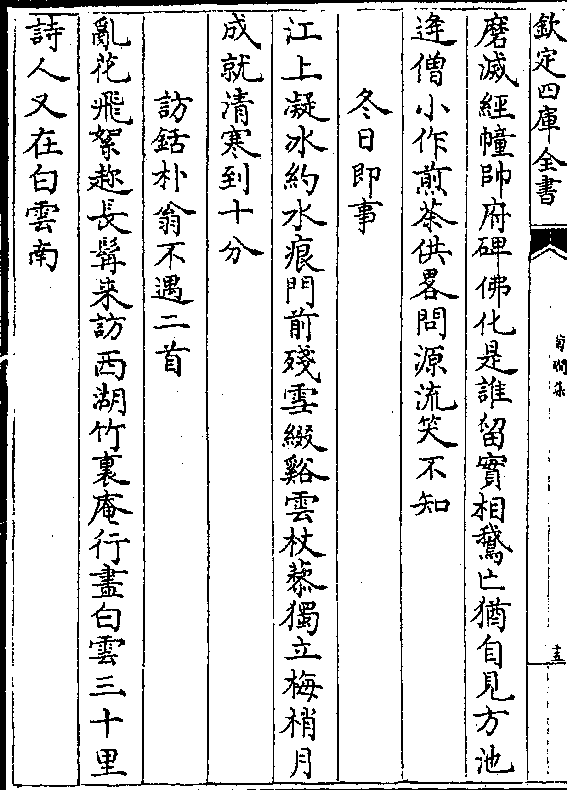 欽定四庫全書
菊磵集
磨滅經幢帥府碑佛化是誰留實相鵞亡猶自見方池
逄僧小作煎茶供畧問源流笑不知
冬日即事
江上凝冰約水痕門前殘雪綴谿雲杖藜獨立梅梢月
成就清寒到十分
訪銛朴翁不遇二首
亂花飛絮趂長髯来訪西湖竹裏庵行盡白雲三十里
詩人又在白雲南